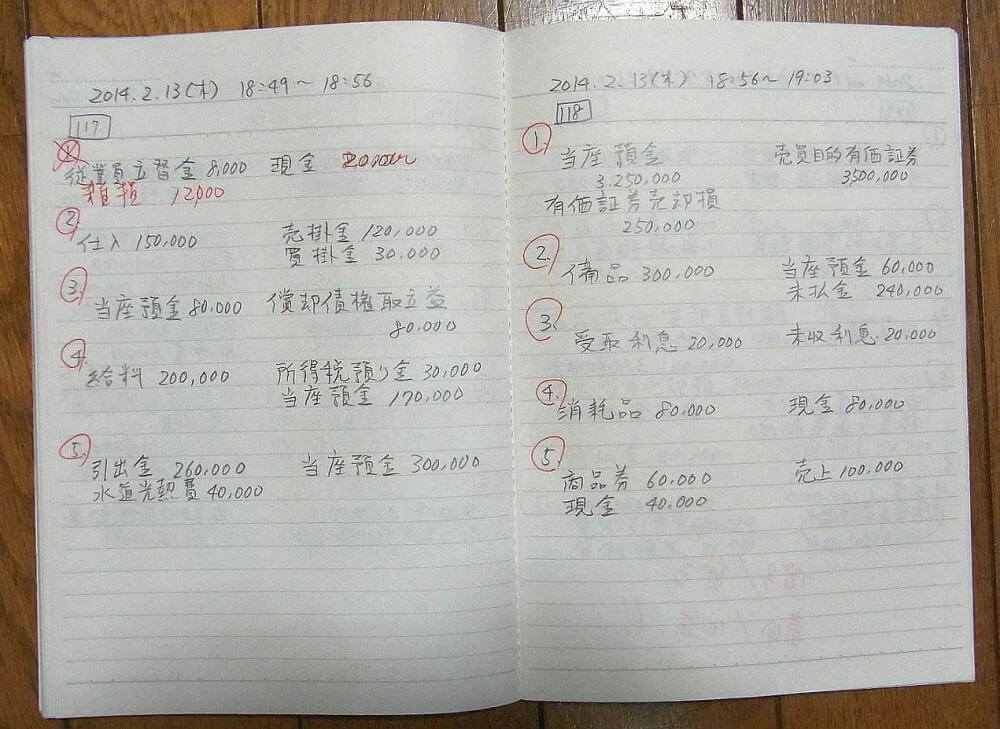 2014.2.13(木) 18:49～18:56
117
1.
従業員立替金 8,000 現金
雑損 12,000
2. 仕入 150,000 売掛金 120,000
買掛金 30,000
3. 当座預金 80,000 償却債権取立益
80,000
4. 給料 200,000 所得税預り金 30,000
当座預金 170,000
5. 引出金 260,000 当座預金 300,000
水道光熱費 40,000
2014.2.13(木) 18:56～19:03
118
1. 当座預金 売買目的有価証券
3,250,000 3,500,000
有価証券売却損
250,000
2. 備品 300,000 当座預金 60,000
未払金 240,000
3. 受取利息 20,000 未収利息 20,000
4. 消耗品 80,000 現金 80,000
5. 商品券 60,000 売上 100,000
現金 40,000